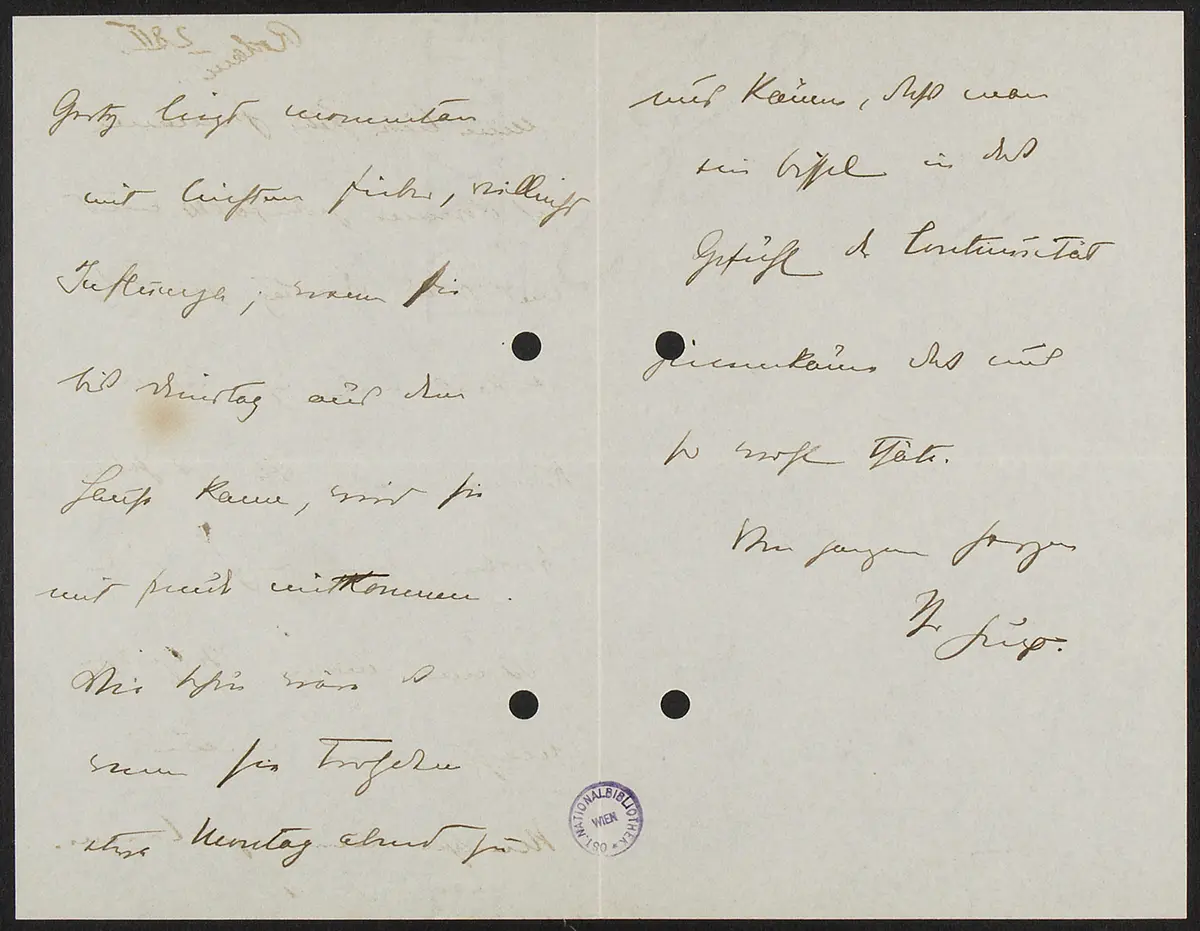 Gerty liegt momentan
mit leichtem Fieber, vielleicht
Influenza; wenn sie
bis Dienstag aus dem
Hause kann, wird sie
mit Freude mitkommen.
Wie schön wäre es
wenn Sie trotzdem
etwa Montag abend zu
uns kämen, dass man
ein bissel in das
Gefühl der Continuität
hineinkäme das mir
so wohl thäte.
Von ganzem Herzen
Ihr Hugo.
ÖST. NATIONALBIBLIOTHEK
WIEN